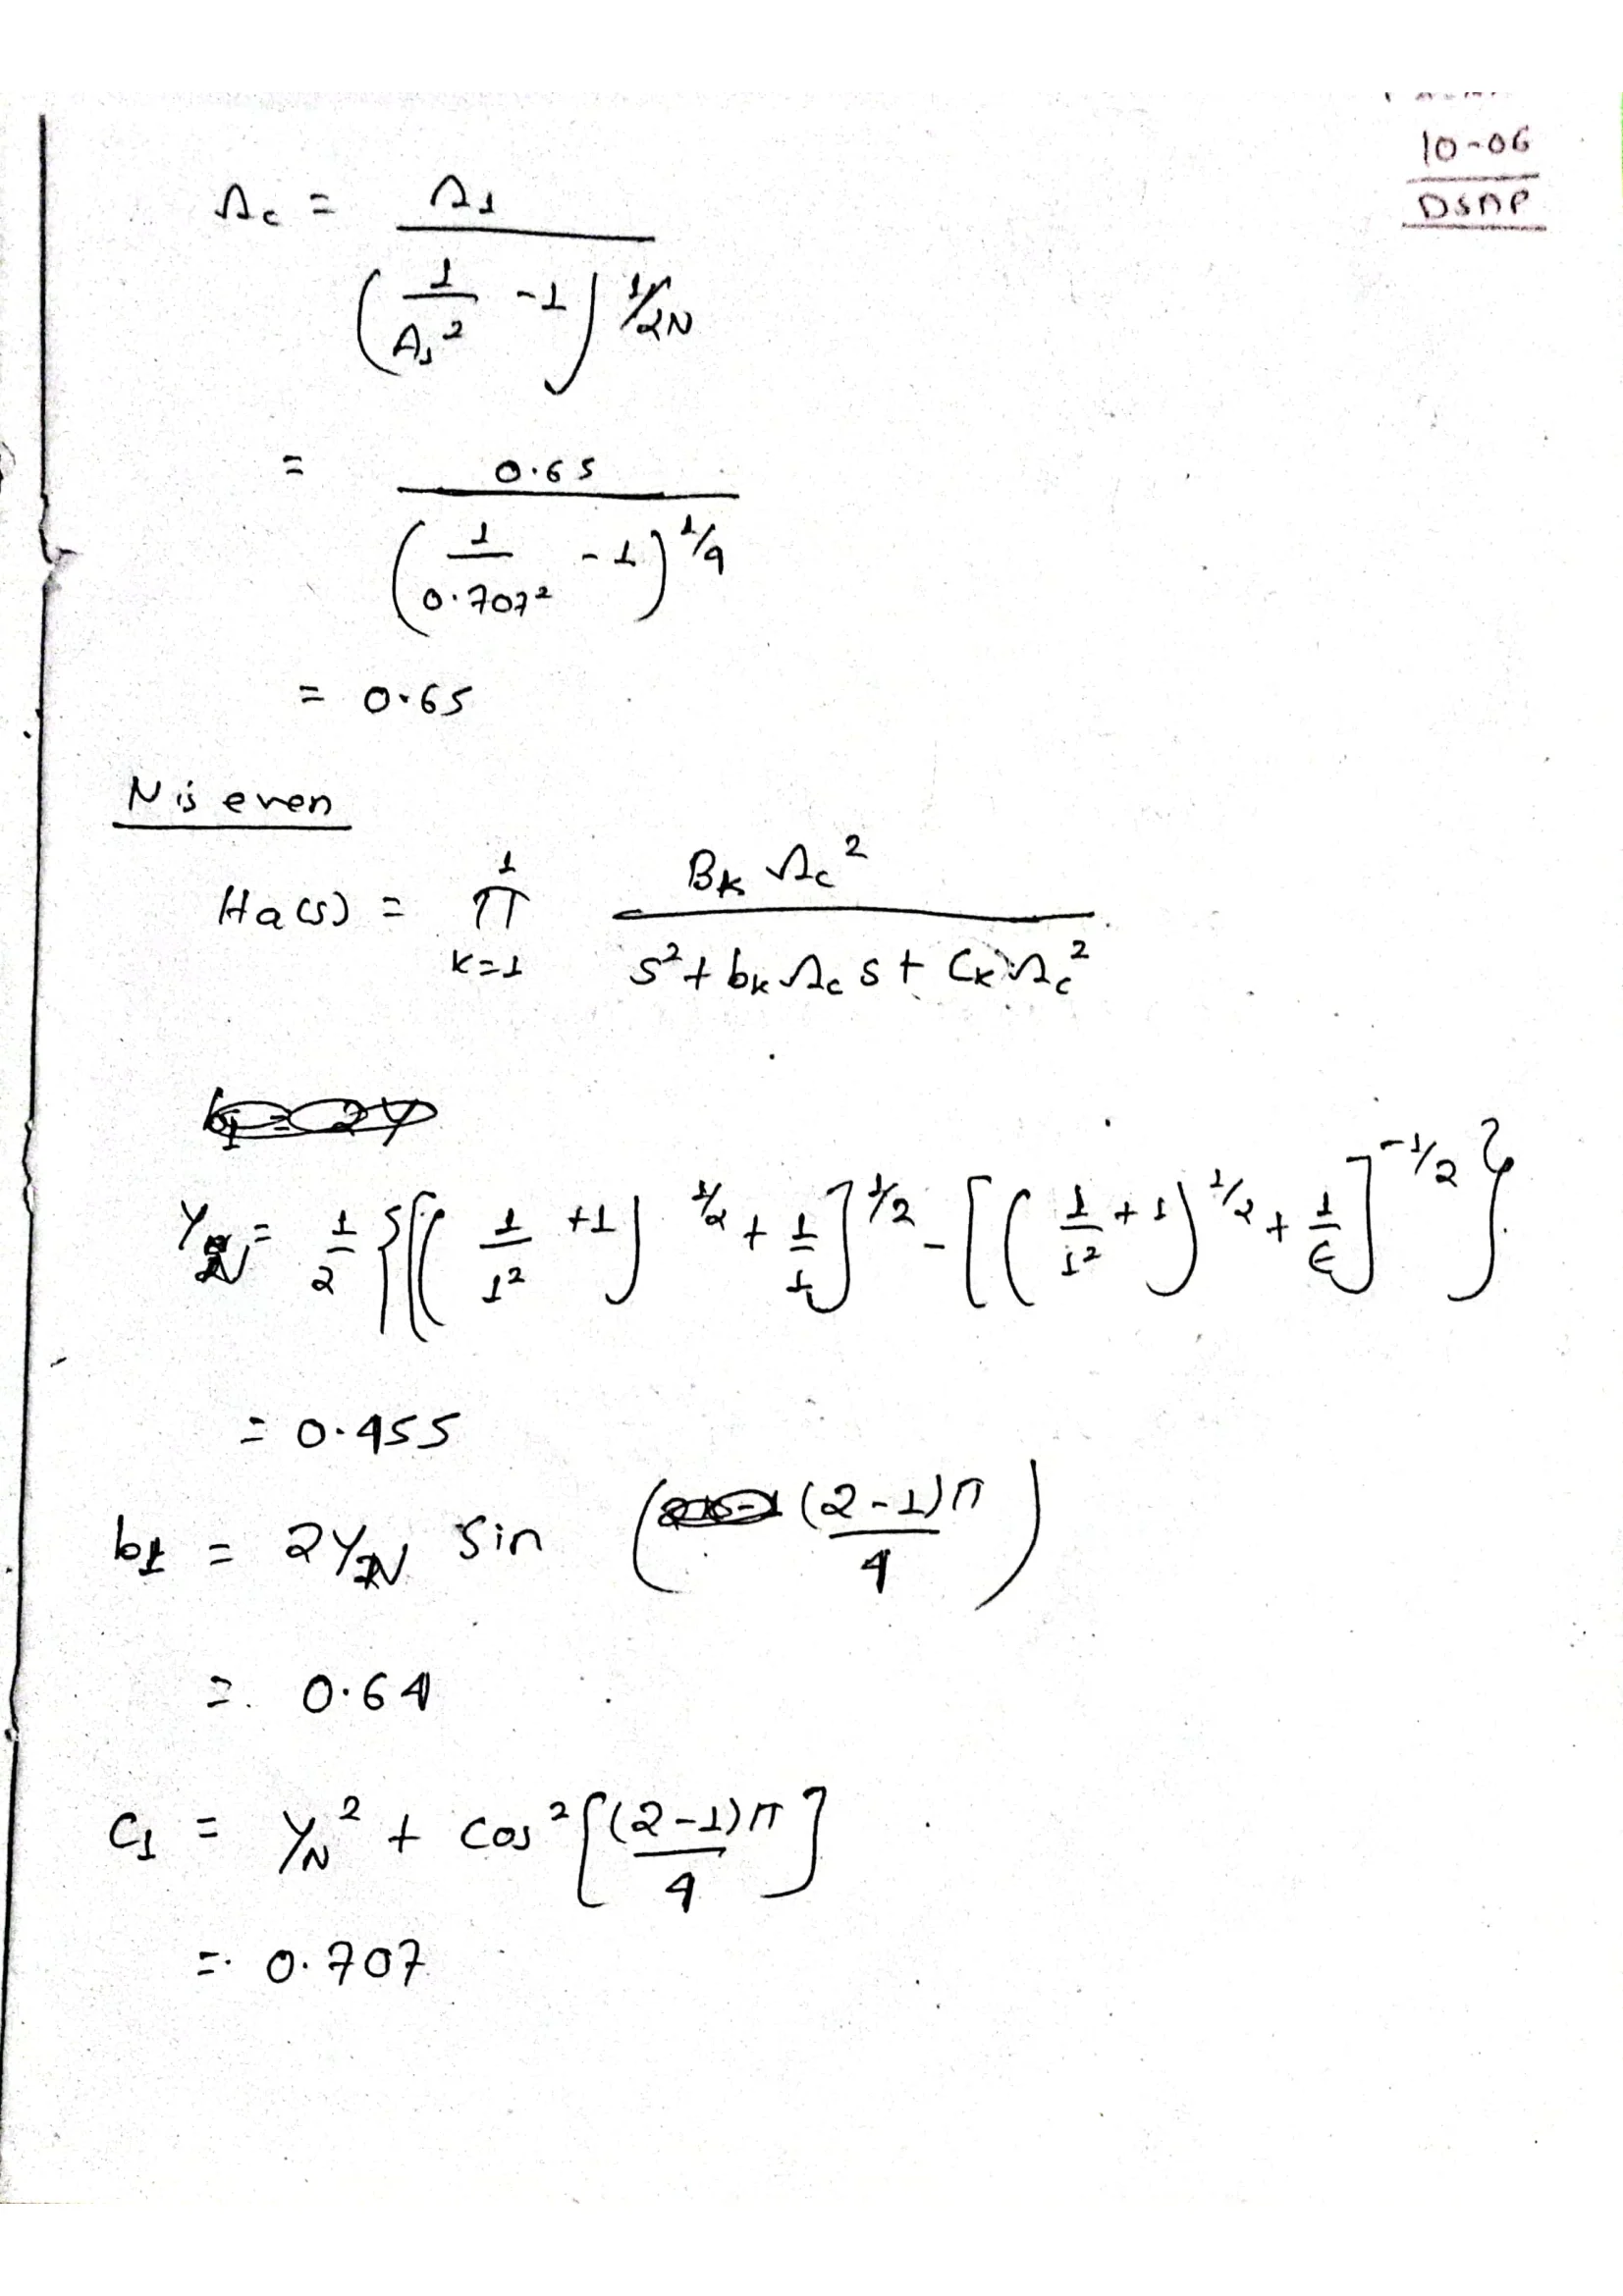 10-06
DSAP
Ωc = Ω1 / (1/A1² - 1)^1/2N
= 0.65 / (1/0.707² - 1)^1/4
= 0.65
N is even
Ha(s) = π (k=1 to 1) Bk Ωc² / s² + bk Ωc s + Ck Ωc²
YN = 1/2 {[(1/1² + 1)^1/2 + 1/1]^1/2 - [(1/1² + 1)^1/2 + 1/ε]^-1/2}
= 0.455
b1 = 2YN Sin ((2-1)π / 4)
= 0.64
C1 = YN² + Cos² [(2-1)π / 4]
= 0.707